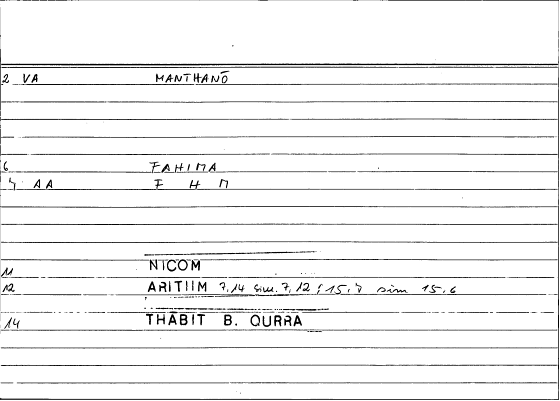 2 VA MANTHANŌ
6 FAHIMA
4 AA F H M
11 NICOM
12 ARITIIM 7,14 sim. 7,12; 15,7 sim 15,6
14 THABIT B. QURRA